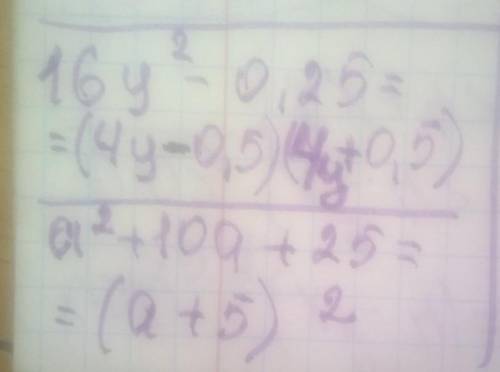 16y² - 0,25 =
= (4y - 0,5)(4y + 0,5)
a² + 10a + 25 =
= (a + 5)²